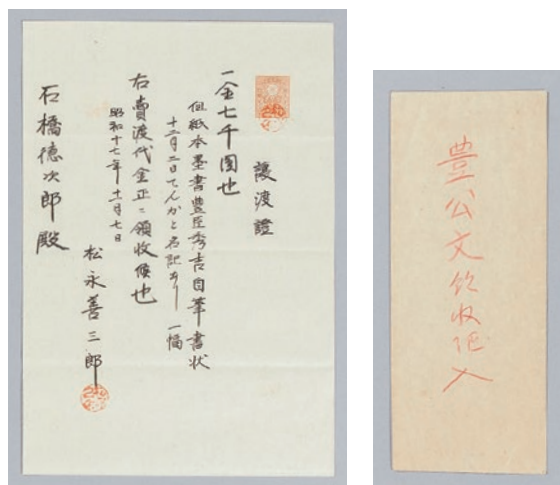 譲渡證
一金七千圓也
但紙本墨書豊臣秀吉自筆書状
十二月二日てんかと名記あり 一幅
右賣渡代金正ニ領收候也
昭和十七年十一月七日
松永善三郎
石橋徳次郎殿
豊公文領收証入